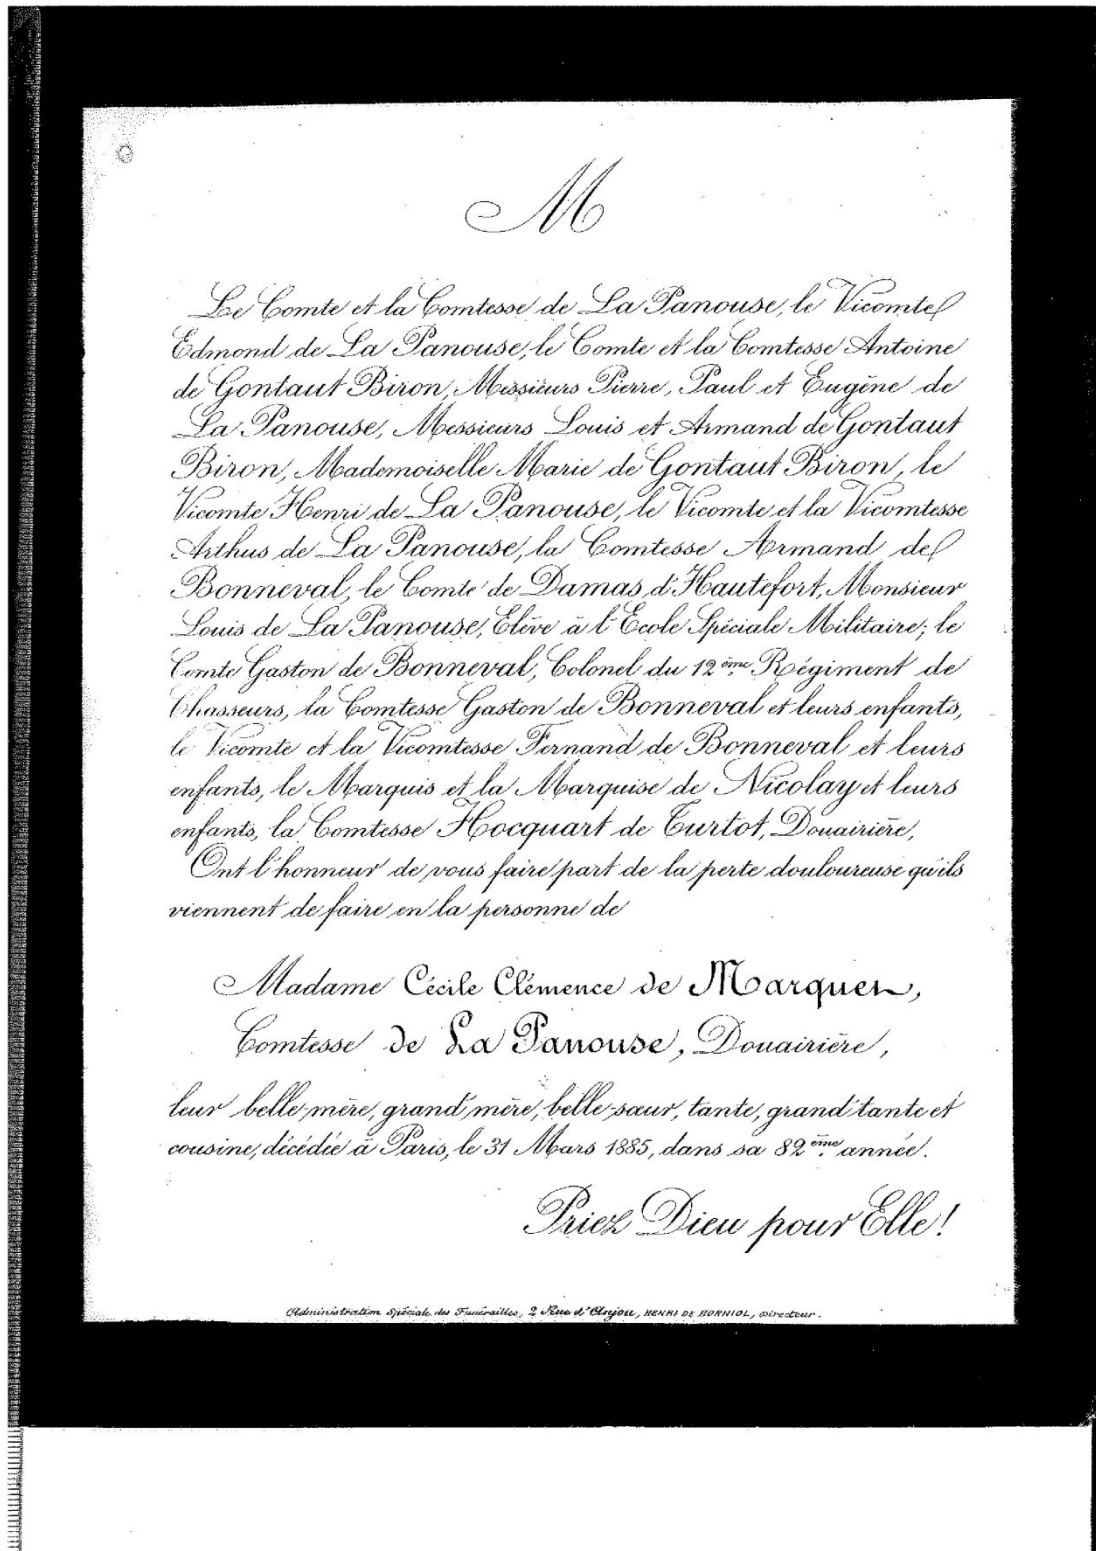 M
Le Comte et la Comtesse de La Panouse, le Vicomte
Edmond de La Panouse, le Comte et la Comtesse Antoine
de Gontaut Biron, Messieurs Pierre, Paul et Eugène de
La Panouse, Messieurs Louis et Armand de Gontaut
Biron, Mademoiselle Marie de Gontaut Biron, le
Vicomte Henri de La Panouse, le Vicomte et la Vicomtesse
Arthus de La Panouse, la Comtesse Armand de
Bonneval, le Comte de Damas d'Hautefort, Monsieur
Louis de La Panouse, Elève à l'Ecole Spéciale Militaire; le
Comte Gaston de Bonneval, Colonel du 12ème Régiment de
Chasseurs, la Comtesse Gaston de Bonneval et leurs enfants,
le Vicomte et la Vicomtesse Fernand de Bonneval et leurs
enfants, le Marquis et la Marquise de Nicolay et leurs
enfants, la Comtesse Hocquart de Turtot, Douairière,
Ont l'honneur de vous faire part de la perte douloureuse qu'ils
viennent de faire en la personne de
Madame Cécile Clémence de Marquet,
Comtesse de La Panouse, Douairière,
leur belle-mère, grand'mère, belle-sœur, tante, grand'tante et
cousine, décédée à Paris, le 31 Mars 1885, dans sa 82ème année.
Priez Dieu pour Elle!
Administration Spéciale des Funérailles, 2 Rue d'Anjou, HENRI DE BORNIOL, Directeur.